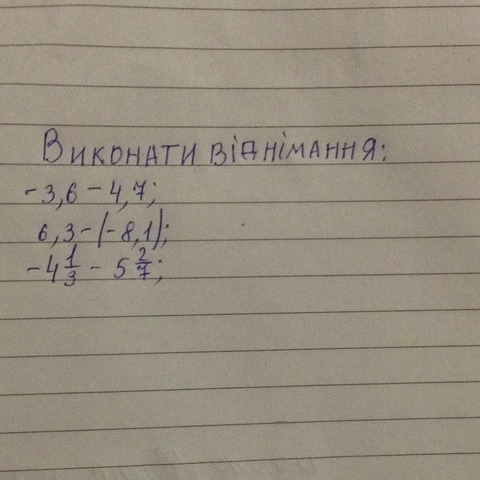 Виконати віднімання:
-3,6 - 4,7;
6,3 - (-8,1);
-4 1/3 - 5 2/7;